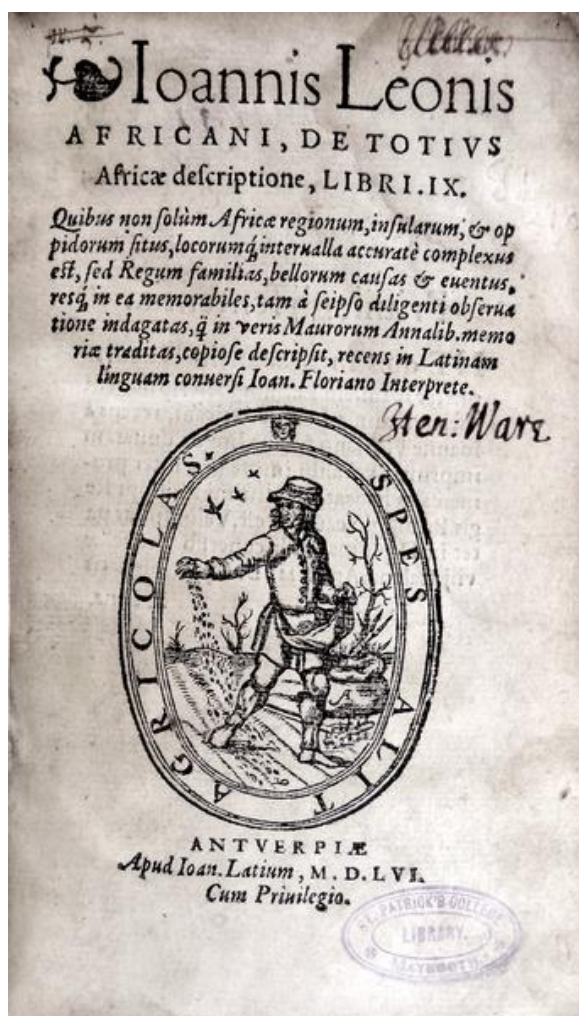 Ioannis Leonis
AFRICANI, DE TOTIVS
Africæ deſcriptione, LIBRI.IX.
Quibus non ſolùm Africæ regionum, inſularum, & op
pidorum ſitus, locorumq́; interualla accuratè complexus
eſt, ſed Regum familias, bellorum cauſas & euentus,
resq́; in ea memorabiles, tam à ſeipſo diligenti obſerua
tione indagatas, q̃ in veris Maurorum Annalib. memo
riæ traditas, copioſe deſcripſit, recens in Latinam
linguam conuerſi Ioan. Floriano Interprete.
Hen: Ware
SPES ALIT AGRICOLAS.
ANTVERPIÆ
Apud Ioan. Latium, M. D. LVI.
Cum Priuilegio.
ST. PATRICK'S COLLEGE
LIBRARY.
MAYNOOTH